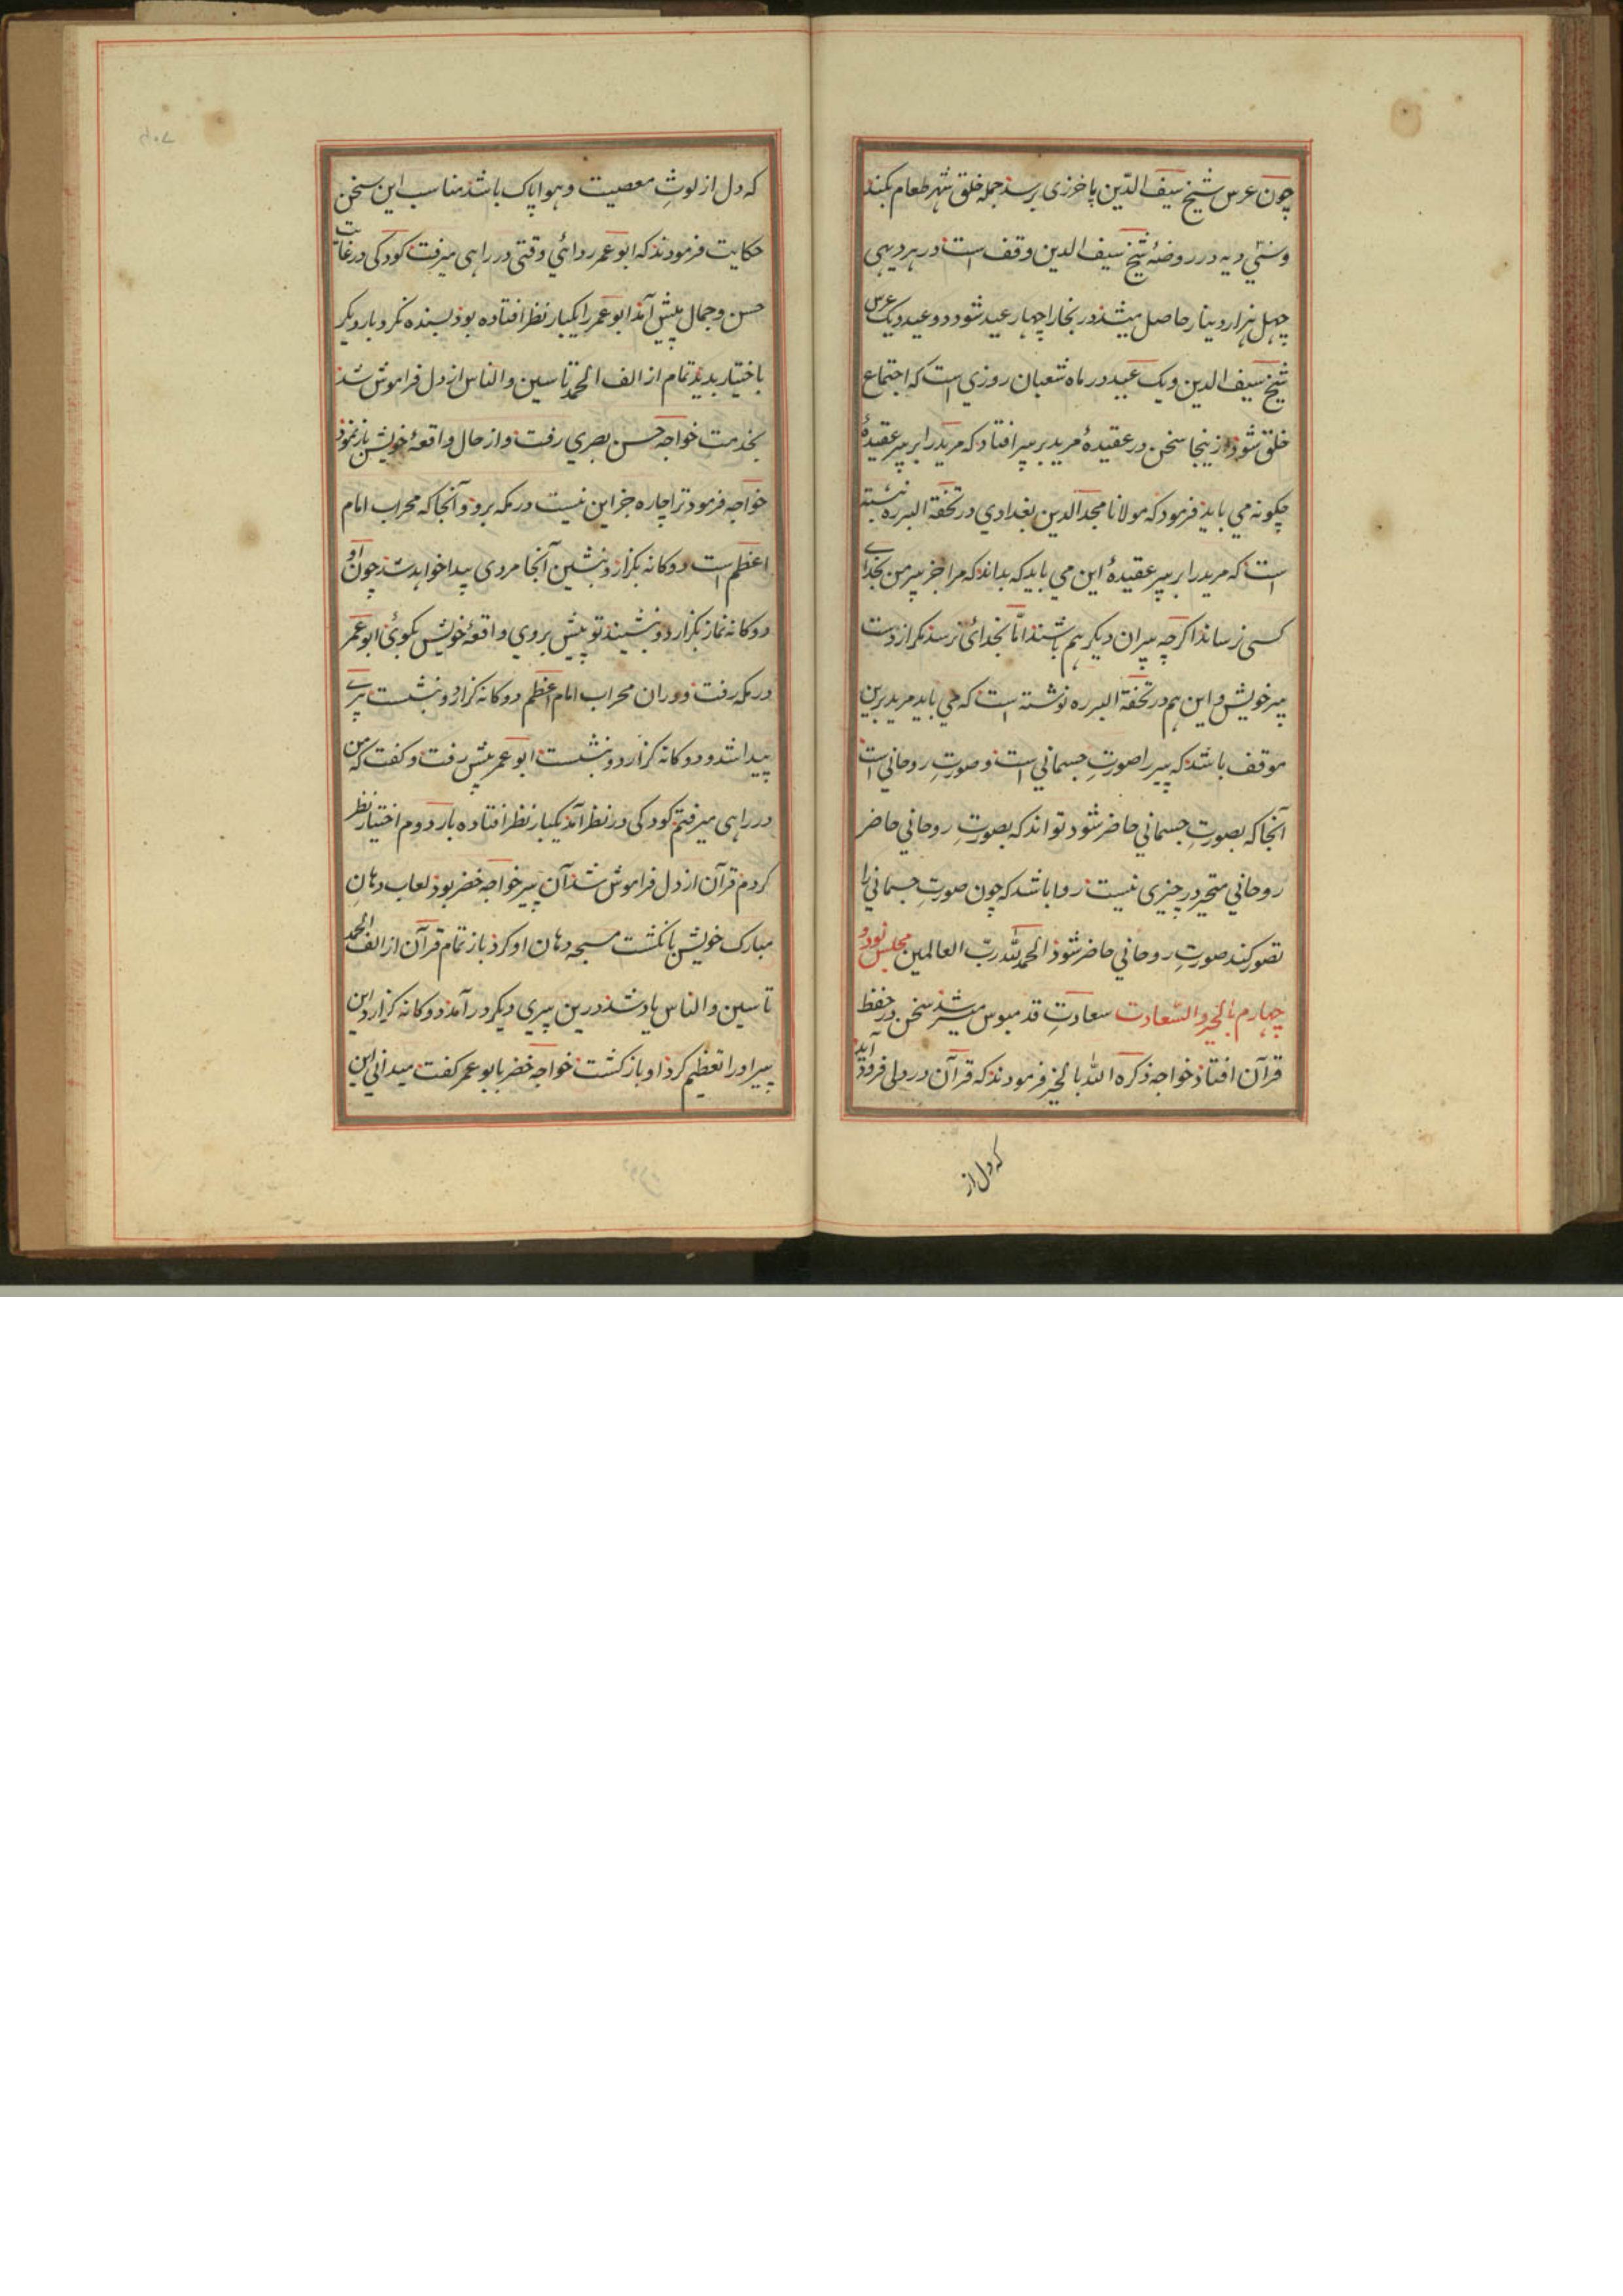 چون عرس شیخ سیف الدّین باخرزی برسد جمله خلق شهر طعام بکنند
و سی دیه در روضهٔ شیخ سیف الدین وقف است در هر دیهی
چهل هزار دینار حاصل میشد در بخارا چهار عید شود دو عید و یک عرس
شیخ سیف الدین و یک عید در ماه شعبان روزی است که اجتماع
خلق شود از ینجا سخن در عقیدهٔ مرید بر پیر افتاد که مرید را بر پیر عقیدهٔ
چگونه می باید فرمود که مولانا مجد الدین بغدادی در تحفة البرره نبشته
است که مرید را بر پیر عقیدهٔ این می باید که بداند که مرا جز پیر من بخدای
کسی نرساند اگرچه پیران دیگر هم باشند امّا بخدای نرسد مگر از دست
پیر خویش و این هم در تحفة البرره نوشته است که می باید مرید برین
موقف باشد که پیر را صورتِ جسمانی است و صورتِ روحانی است
آنجا که بصورتِ جسمانی حاضر شود تواند که بصورتِ روحانی حاضر
روحانی متحیر در چیزی نیست روا باشد که چون صورتِ جسمانی را
تصور کند صورتِ روحانی حاضر شود الحمد لله ربّ العالمین مجلس نود و
چهارم بالخیر و السّعادت سعادتِ قدمبوس میسر شد سخن در حفظ
قرآن افتاد خواجه ذکره الله بالخیر فرمودند که قرآن در دلی فرود آید
که دل از
که دل از لوثِ معصیت و هوا پاک باشد مناسب این سخن
حکایت فرمودند که ابو عمر ردائی وقتی در راهی میرفت کودکی در غایت
حسن و جمال پیش آمد ابو عمر را یکبار نظر افتاده بود بسنده نکرد بار دیگر
باختیار بدید تمام از الف الحمد تا سین والناس از دل فراموش شد
بخدمت خواجه حسن بصری رفت و از حال واقعهٔ خویش باز نمود
خواجه فرمود ترا چاره جز این نیست در مکه برو و آنجا که محراب امام
اعظم است دوکانه بگزار و بنشین آنجا مردی پیدا خواهد شد چون او
دوکانه نماز بگزارد و بنشیند تو پیش بروی و واقعهٔ خویش بگوئی ابو عمر
در مکه رفت و در ان محراب امام اعظم دوکانه گزارد و بنشست پیرے
پیدا شد و دوکانه گزارد و بنشست ابو عمر پیش رفت و گفت که من
در راهی میرفتم کودکی در نظر آمد یکبار نظر افتاده بار دوم اختیار نظر
کردم قرآن از دل فراموش شد آن پیر خواجه خضر بود لعاب دهانِ
مبارک خویش بانگشت مسبحه دهان او کرد باز تمام قرآن از الف الحمد
تا سین والناس یاد شد درین پیری دیگر در آمد دوکانه گزارد این
پیر او را تعظیم کرد او باز گشت خواجه خضر بابو عمر گفت میدانی این